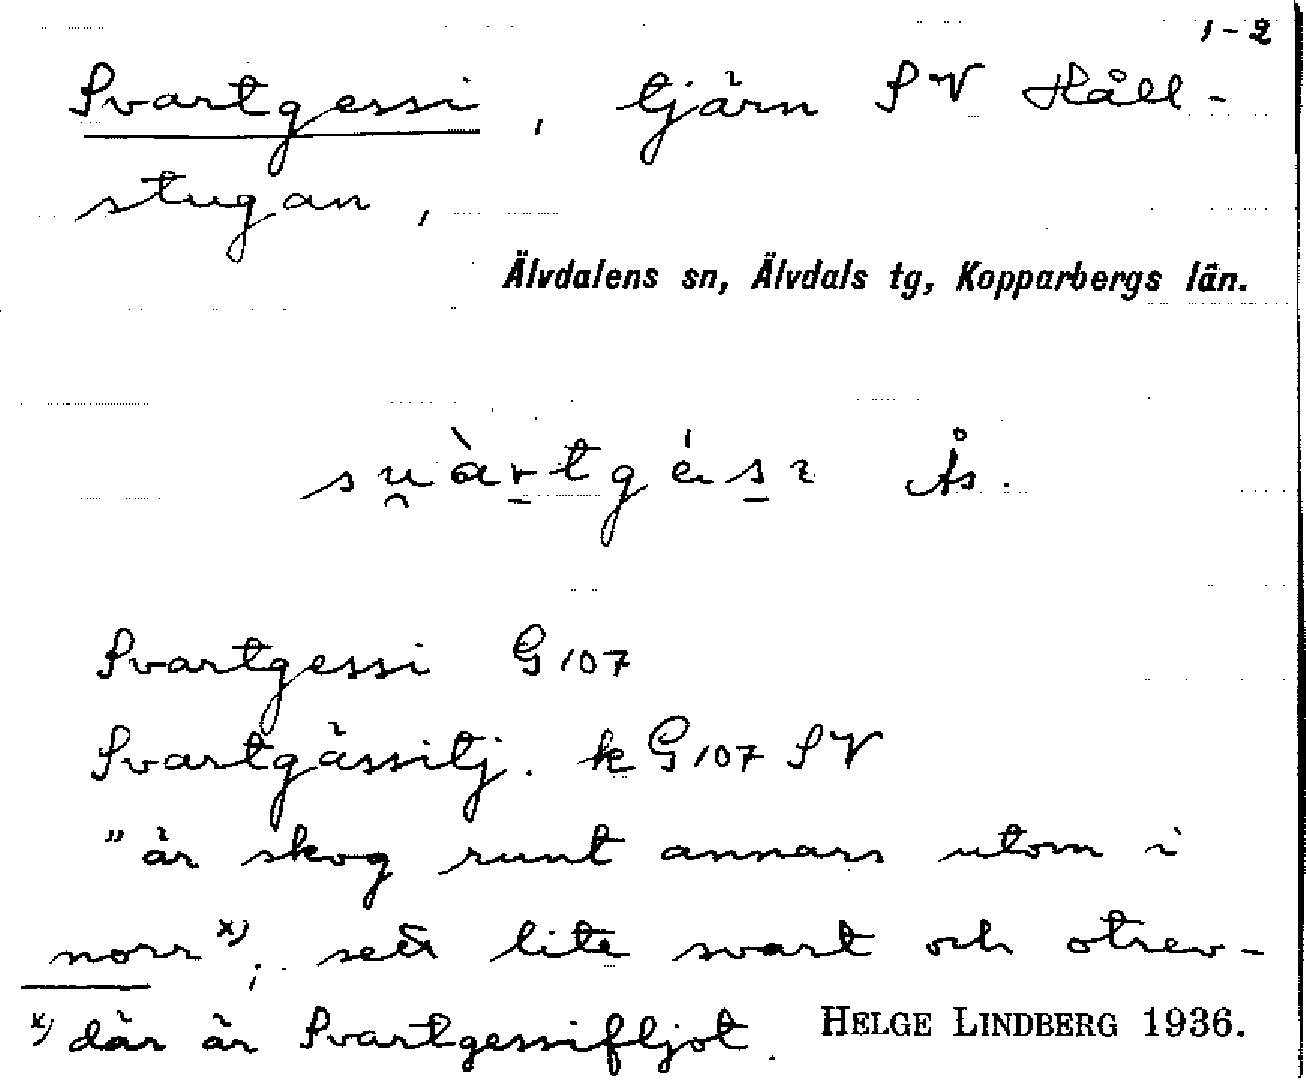 1-2
Svartgessi, tjärn SV Håll-
stugan,
Älvdalens sn, Älvdals tg, Kopparbergs län.
Ås.
Svartgessi G107
Svartgässitj. k G107 SV
"är skog runt annars utom i
norr x); ser lite svart och otrev-
x) där är Svartgessifljot.
HELGE LINDBERG 1936.